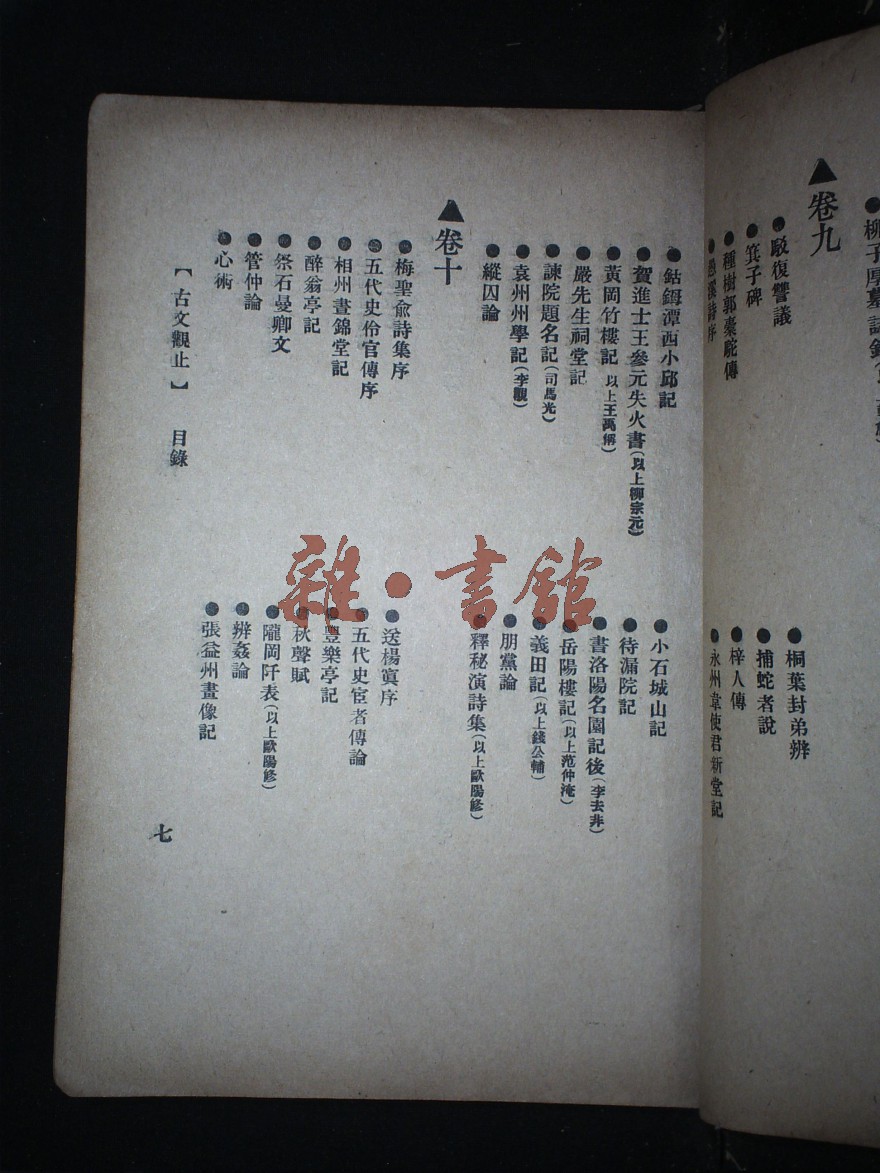 ●柳子厚墓誌銘
▲卷九
●駁復讐議 ●桐葉封弟辨
●箕子碑 ●捕蛇者說
●種樹郭橐駝傳 ●梓人傳
●愚溪詩序 ●永州韋使君新堂記
●鈷鉧潭西小邱記 ●小石城山記
●賀進士王參元失火書(以上柳宗元) ●待漏院記
●黃岡竹樓記 以上王禹偁) ●書洛陽名園記後(李去非)
●嚴先生祠堂記 ●岳陽樓記(以上范仲淹)
●諫院題名記(司馬光) ●義田記(以上錢公輔)
●袁州州學記(李覯) ●朋黨論
●縱囚論 ●釋秘演詩集(以上歐陽修)
▲卷十
●梅聖俞詩集序 ●送楊寘序
●五代史伶官傳序 ●五代史宦者傳論
●相州晝錦堂記 ●豐樂亭記
●醉翁亭記 ●秋聲賦
●祭石曼卿文 ●隴岡阡表(以上歐陽修)
●管仲論 ●辨姦論
●心術 ●張益州畫像記
【古文觀止】 目錄
七
雜·書館